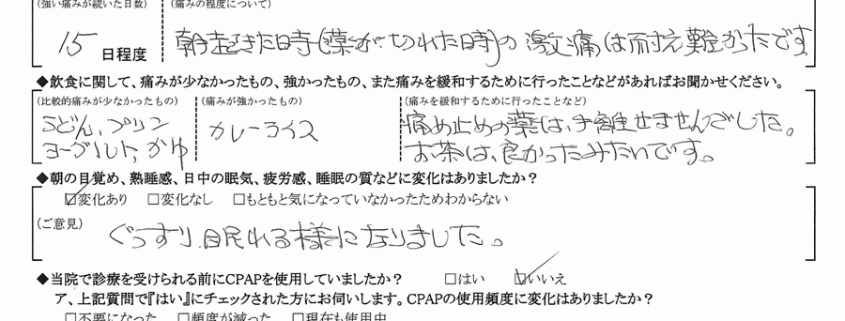 (強い痛みが続いた日数) (痛みの程度について)
15 日程度 朝起きた時(薬が切れた時)の激痛は耐え難かったです
◆飲食に関して、痛みが少なかったもの、強かったもの、また痛みを緩和するために行ったことなどがあればお聞かせください。
(比較的痛みが少なかったもの) (痛みが強かったもの) (痛みを緩和するために行ったことなど)
うどん、プリン カレーライス 痛め止めの薬は、手離せませんでした。
ヨーグルト、かゆ お茶は、良かったみたいです。
◆朝の目覚め、熟睡感、日中の眠気、疲労感、睡眠の質などに変化はありましたか?
☑変化あり □変化なし □もともと気になっていなかったためわからない
(ご意見) ぐっすり眠れる様になりました。
◆当院で診療を受けられる前にCPAPを使用していましたか? □はい ☑いいえ
ア、上記質問で『はい』にチェックされた方にお伺いします。CPAPの使用頻度に変化はありましたか?
□不要になった □頻度が減った □現在も使用中